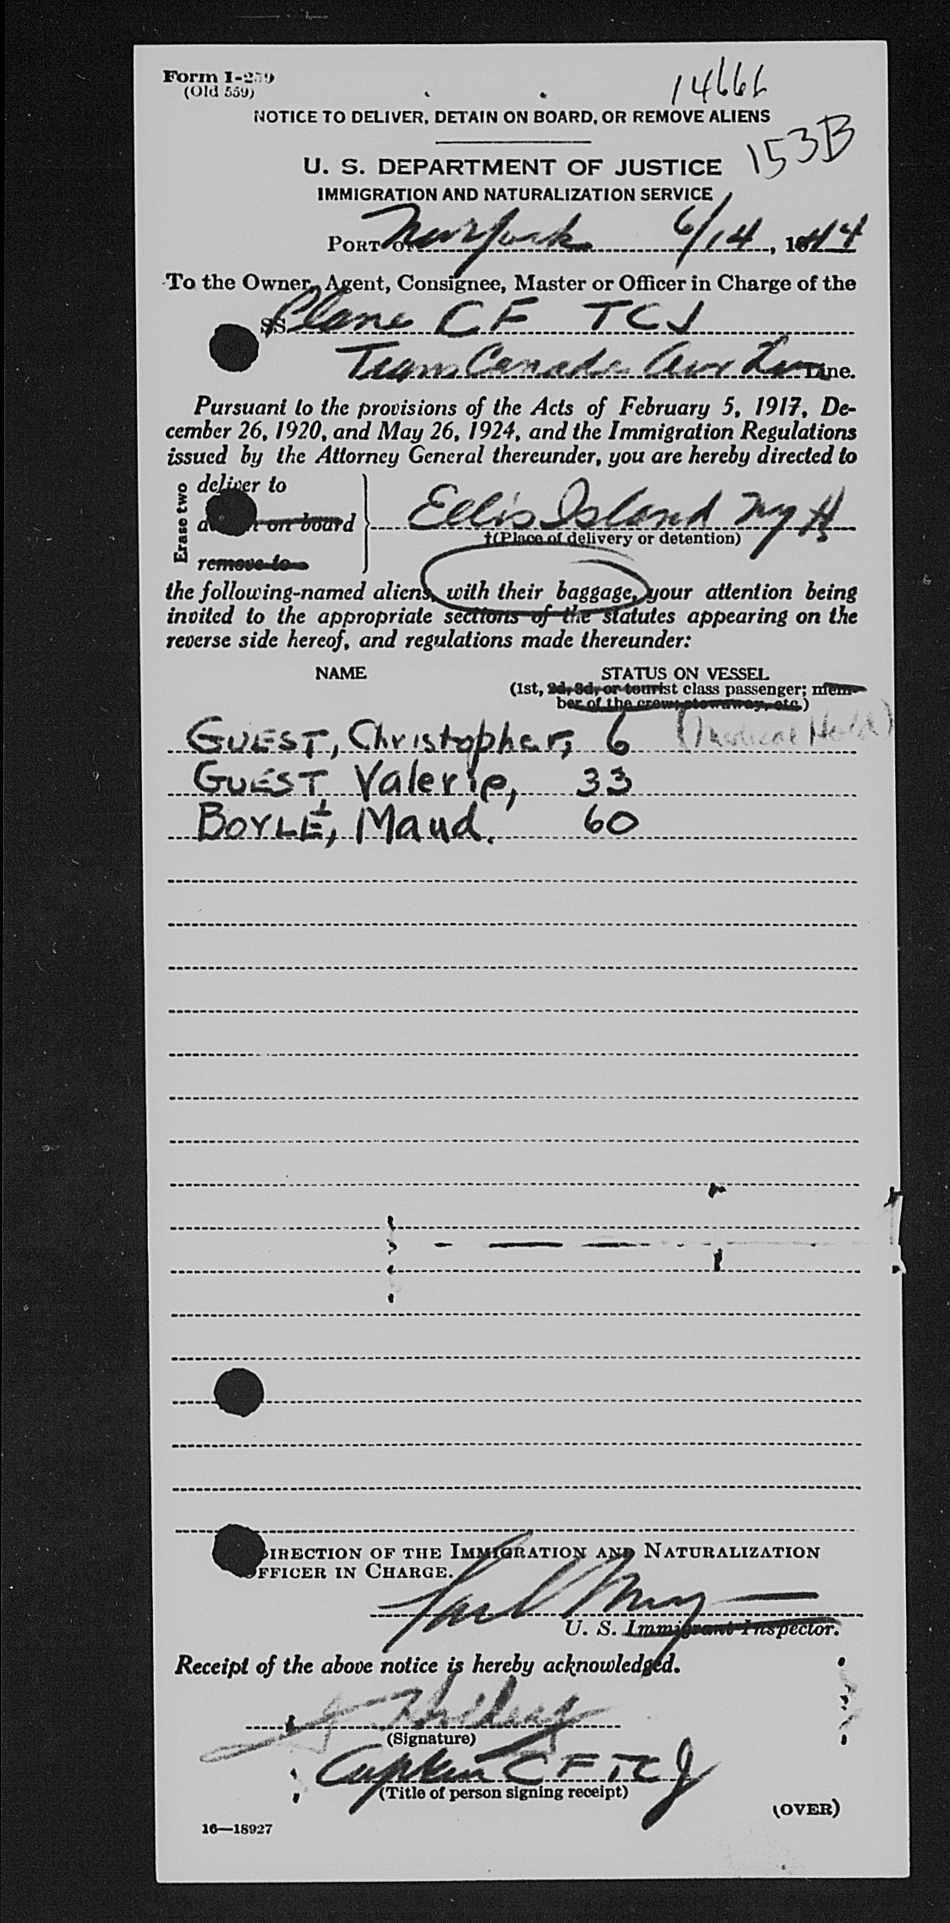 Form I-259
(Old 559)
14666
NOTICE TO DELIVER, DETAIN ON BOARD, OR REMOVE ALIENS
153B
U. S. DEPARTMENT OF JUSTICE
IMMIGRATION AND NATURALIZATION SERVICE
PORT OF New York 6/14, 1944
To the Owner, Agent, Consignee, Master or Officer in Charge of the
SS Plane CF TCJ
Trans Canada Air Line.
Pursuant to the provisions of the Acts of February 5, 1917, De-
cember 26, 1920, and May 26, 1924, and the Immigration Regulations
issued by the Attorney General thereunder, you are hereby directed to
Erase two
deliver to
on board
Ellis Island NY H
†(Place of delivery or detention)
remove to
the following-named aliens, with their baggage, your attention being
invited to the appropriate sections of the statutes appearing on the
reverse side hereof, and regulations made thereunder:
NAME STATUS ON VESSEL
(1st, 2d, 3d, or tourist class passenger; mem-
ber of the crew; stowaway, etc.)
GUEST, Christopher, 6 (Medical Hold)
GUEST Valerie, 33
BOYLE, Maud. 60
DIRECTION OF THE IMMIGRATION AND NATURALIZATION
OFFICER IN CHARGE.
U. S. Immigrant Inspector.
Receipt of the above notice is hereby acknowledged.
(Signature)
Captain CF TCJ
(Title of person signing receipt)
(OVER)
16—18927